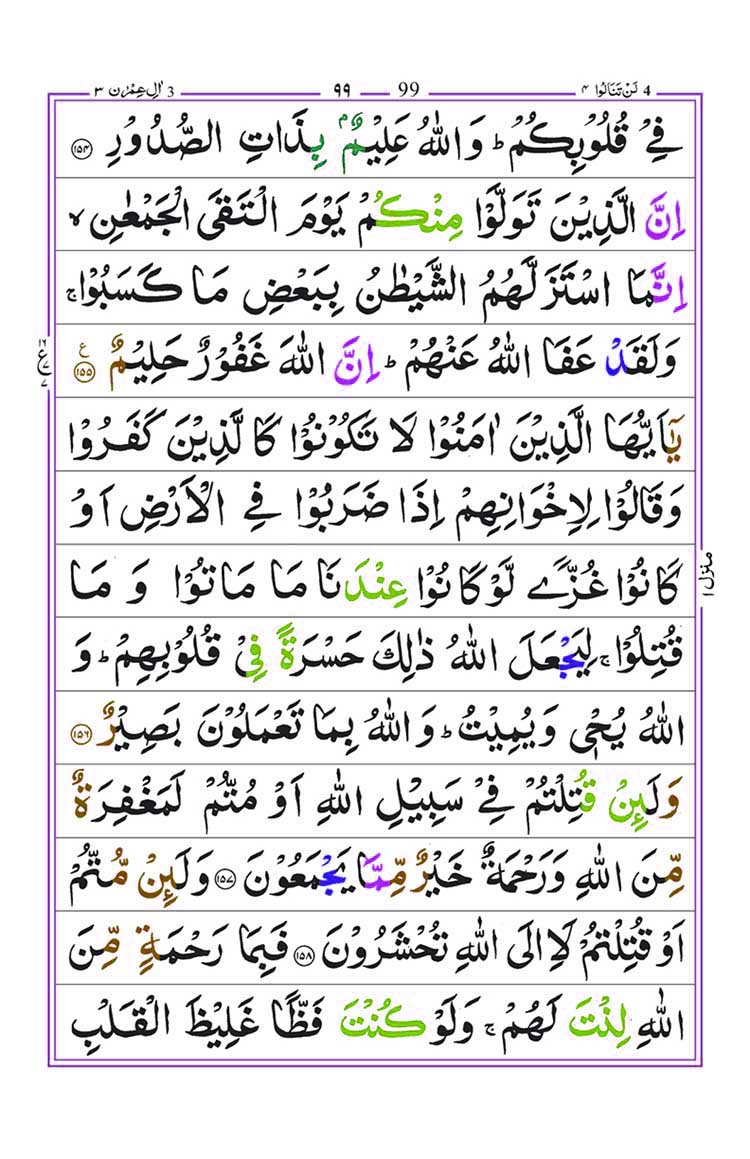 4 لَنْ تَنَالُوْا ٤ 99 ٩٩ 3 اٰلِ عِمْرٰن ٣
فِيْ قُلُوْبِكُمْ ؕ وَاللّٰهُ عَلِيْمٌۢ بِذَاتِ الصُّدُوْرِ ﴿۱۵۴﴾
اِنَّ الَّذِيْنَ تَوَلَّوْا مِنْكُمْ يَوْمَ الْتَقَى الْجَمْعٰنِ ۙ
اِنَّمَا اسْتَزَلَّهُمُ الشَّيْطٰنُ بِبَعْضِ مَا كَسَبُوْا ۚ
وَلَقَدْ عَفَا اللّٰهُ عَنْهُمْ ؕ اِنَّ اللّٰهَ غَفُوْرٌ حَلِيْمٌ ﴿۱۵۵﴾ ع
يٰۤاَيُّهَا الَّذِيْنَ اٰمَنُوْا لَا تَكُوْنُوْا كَالَّذِيْنَ كَفَرُوْا
وَقَالُوْا لِاِخْوَانِهِمْ اِذَا ضَرَبُوْا فِي الْاَرْضِ اَوْ
كَانُوْا غُزًّى لَّوْ كَانُوْا عِنْدَنَا مَا مَاتُوْا وَمَا
قُتِلُوْا ۚ لِيَجْعَلَ اللّٰهُ ذٰلِكَ حَسْرَةً فِيْ قُلُوْبِهِمْ ؕ وَ
اللّٰهُ يُحْيٖ وَيُمِيْتُ ؕ وَاللّٰهُ بِمَا تَعْمَلُوْنَ بَصِيْرٌ ﴿۱۵۶﴾
وَلَئِنْ قُتِلْتُمْ فِيْ سَبِيْلِ اللّٰهِ اَوْ مُتُّمْ لَمَغْفِرَةٌ
مِّنَ اللّٰهِ وَرَحْمَةٌ خَيْرٌ مِّمَّا يَجْمَعُوْنَ ﴿۱۵۷﴾ وَلَئِنْ مُّتُّمْ
اَوْ قُتِلْتُمْ لَاِالَى اللّٰهِ تُحْشَرُوْنَ ﴿۱۵۸﴾ فَبِمَا رَحْمَةٍ مِّنَ
اللّٰهِ لِنْتَ لَهُمْ ۚ وَلَوْ كُنْتَ فَظًّا غَلِيْظَ الْقَلْبِ
منزل ۱